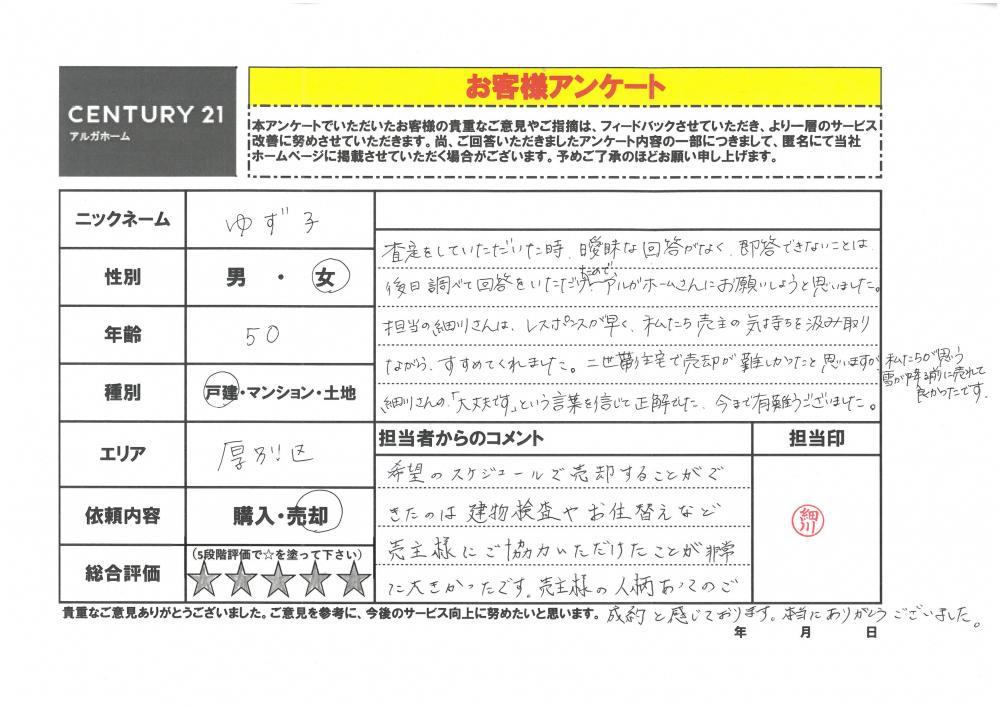 CENTURY 21
アルガホーム
お客様アンケート
本アンケートでいただいたお客様の貴重なご意見やご指摘は、フィードバックさせていただき、より一層のサービス
改善に努めさせていただきます。尚、ご回答いただきましたアンケート内容の一部につきまして、匿名にて当社
ホームページに掲載させていただく場合がございます。予めご了承のほどお願い申し上げます。
ニックネーム
ゆず子
性別
男 ・ 女
年齢
50
種別
戸建・マンション・土地
エリア
厚別区
依頼内容
購入・売却
総合評価
（5段階評価で☆を塗って下さい）
★★★★★
査定をしていただいた時、曖昧な回答がなく、即答できないことは
後日調べて回答をいただけたので、アルガホームさんにお願いしようと思いました。
担当の細川さんは、レスポンスが早く、私たち売主の気持ちを汲み取り
ながら、すすめてくれました。二世帯住宅で売却が難しかったと思いますが、私たちが思う
雪が降る前に売れて
良かったです。
細川さんの「大丈夫です」という言葉を信じて正解でした、今まで有難うございました。
担当者からのコメント
希望のスケジュールで売却することがで
きたのは建物検査やお住替えなど
売主様にご協力いただけたことが非常
に大きかったです。売主様の人柄あってのご
成約と感じております。本当にありがとうございました。
担当印
細川
貴重なご意見ありがとうございました。ご意見を参考に、今後のサービス向上に努めたいと思います。
年 月 日